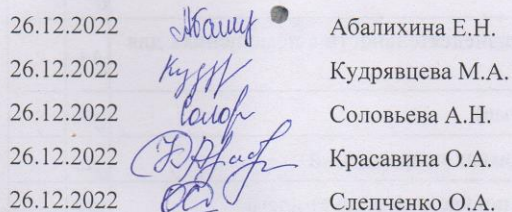 26.12.2022 Абалихина Е.Н.
26.12.2022 Кудрявцева М.А.
26.12.2022 Соловьева А.Н.
26.12.2022 Красавина О.А.
26.12.2022 Слепченко О.А.